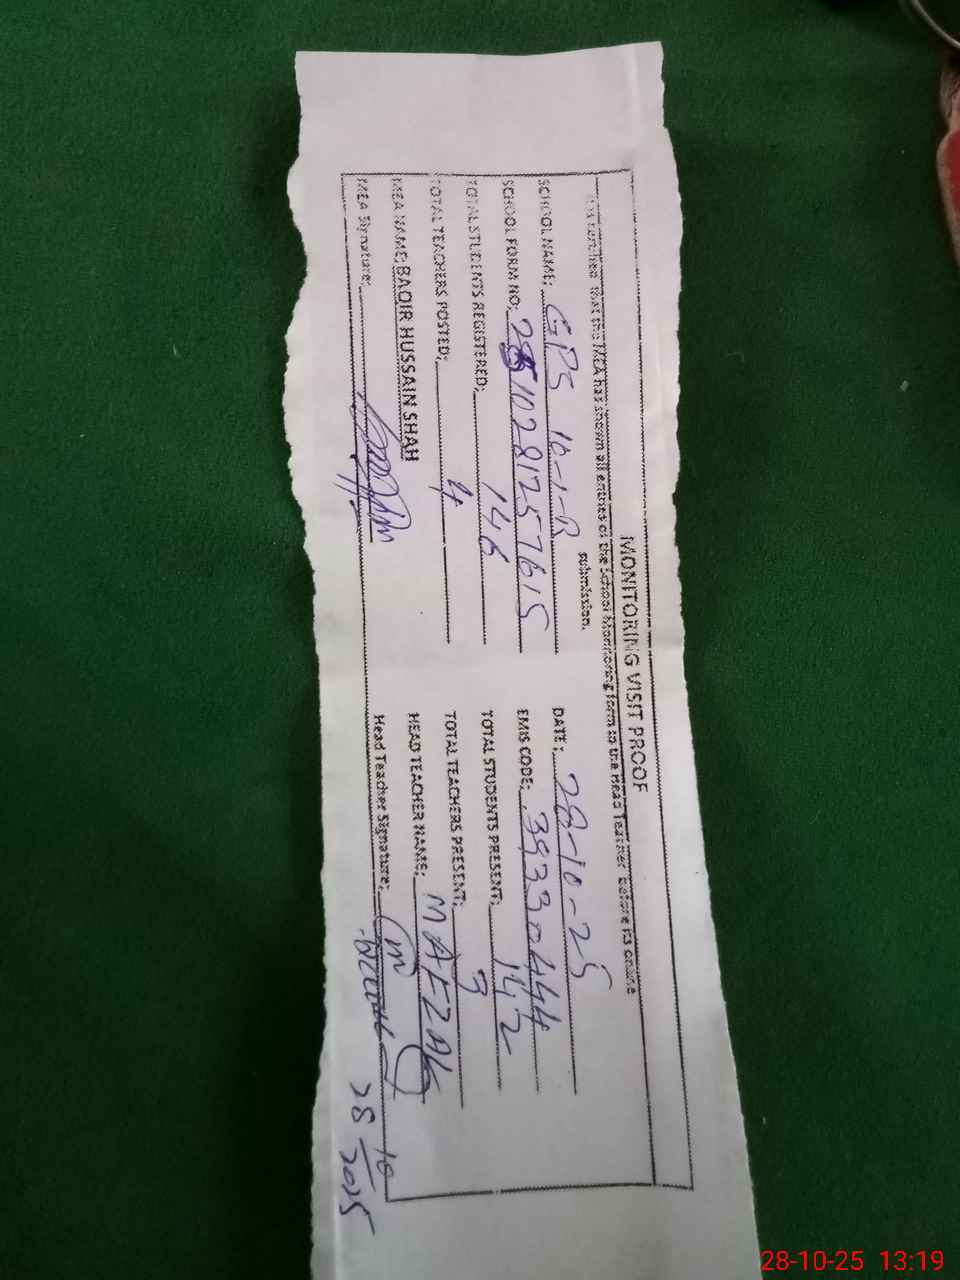 MONITORING VISIT PROOF
This certifies that the MEA has shown all entries of the School Monitoring form to the Head Teacher before its online
submission.
SCHOOL NAME: GPS 10-1-R DATE: 28-10-25
SCHOOL FORM NO: 2810281257615 EMIS CODE: 39330444
TOTAL STUDENTS REGISTERED: 146 TOTAL STUDENTS PRESENT: 142
TOTAL TEACHERS POSTED: 4 TOTAL TEACHERS PRESENT: 3
MEA NAME: BAQIR HUSSAIN SHAH HEAD TEACHER NAME: M AFZAL
MEA Signature: Head Teacher Signature:
28/10/2025
28-10-25 13:19